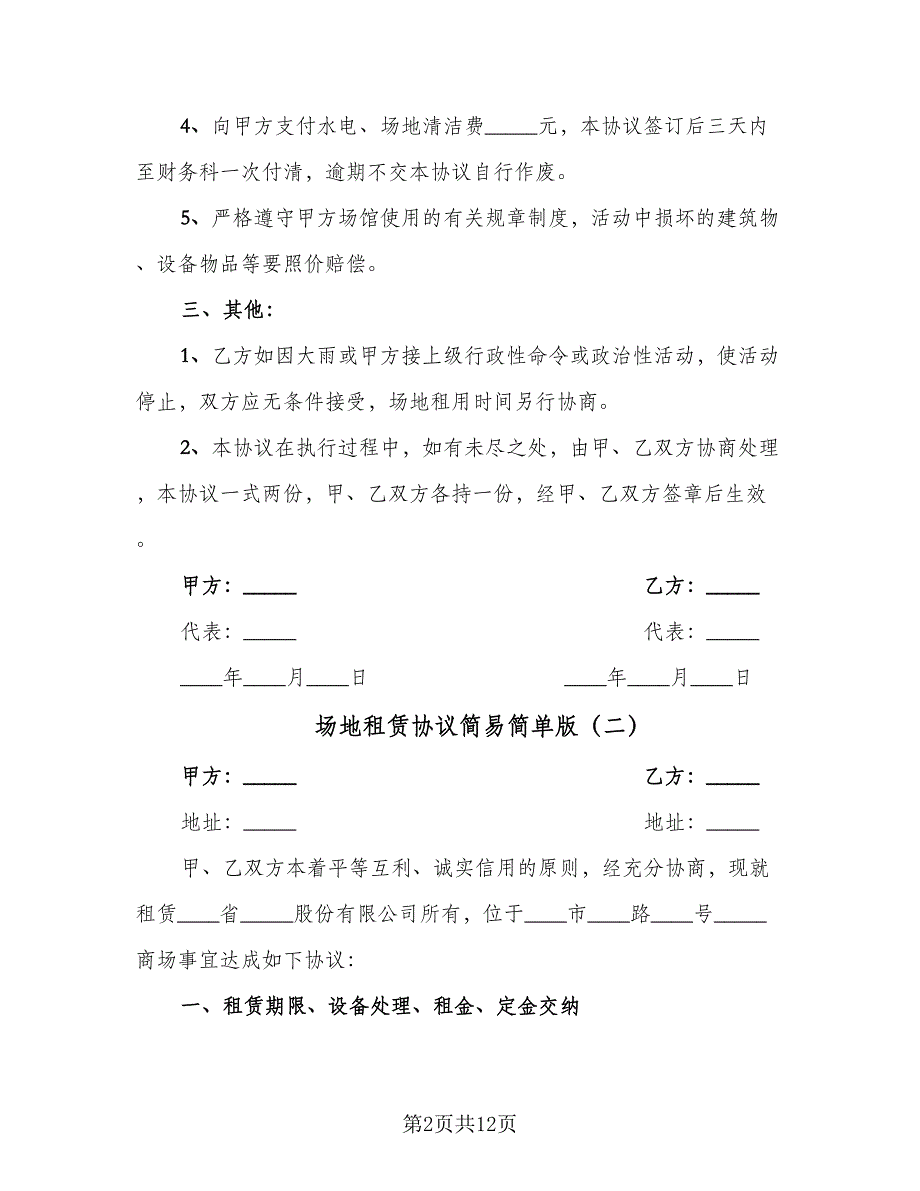 4、向甲方支付水电、场地清洁费_____元，本协议签订后三天内
至财务科一次付清，逾期不交本协议自行作废。
5、严格遵守甲方场馆使用的有关规章制度，活动中损坏的建筑物
、设备物品等要照价赔偿。
三、其他：
1、乙方如因大雨或甲方接上级行政性命令或政治性活动，使活动
停止，双方应无条件接受，场地租用时间另行协商。
2、本协议在执行过程中，如有未尽之处，由甲、乙双方协商处理
，本协议一式两份，甲、乙双方各持一份，经甲、乙双方签章后生效
。
甲方：_____ 乙方：_____
代表：_____ 代表：_____
____年____月____日 ____年____月____日
场地租赁协议简易简单版（二）
甲方：_____ 乙方：_____
地址：_____ 地址：_____
甲、乙双方本着平等互利、诚实信用的原则，经充分协商，现就
租赁____省_____股份有限公司所有，位于____市____路____号_____
商场事宜达成如下协议：
一、租赁期限、设备处理、租金、定金交纳
第2页共12页